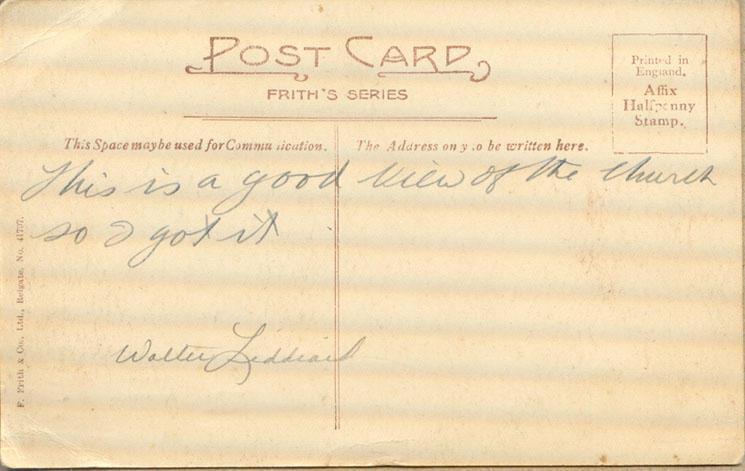 POST CARD
FRITH'S SERIES
Printed in
England.
Affix
Halfpenny
Stamp.
This Space may be used for Communication.
The Address only to be written here.
This is a good view of the church
so I got it
Walter Liddiard
F. Frith & Co., Ltd., Reigate, No. 41737.